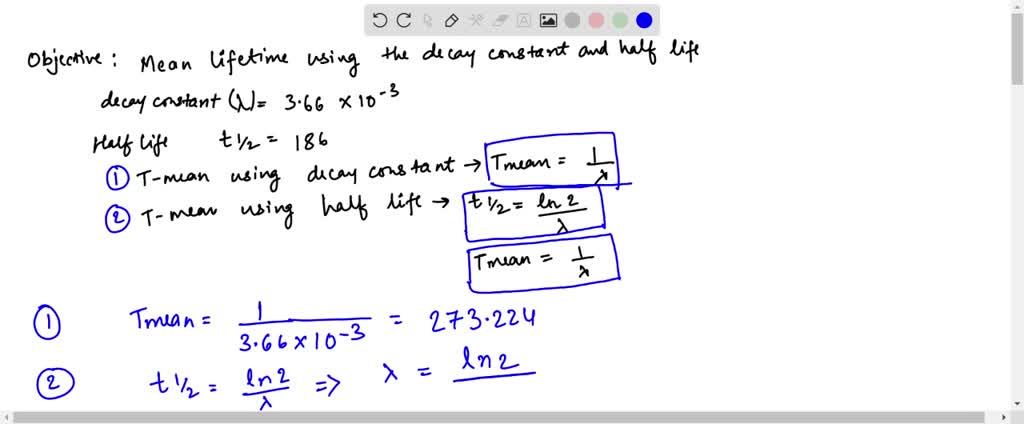 Objective : Mean lifetime using the decay constant and half life
decay constant (λ) = 3.66 × 10⁻³
Half life t1/2 = 186
① T-mean using decay constant → Tmean = 1/λ
② T-mean using half life → t1/2 = ln2/λ
Tmean = 1/λ
① Tmean = 1/3.66×10⁻³ = 273.224
② t1/2 = ln2/λ => λ = ln2